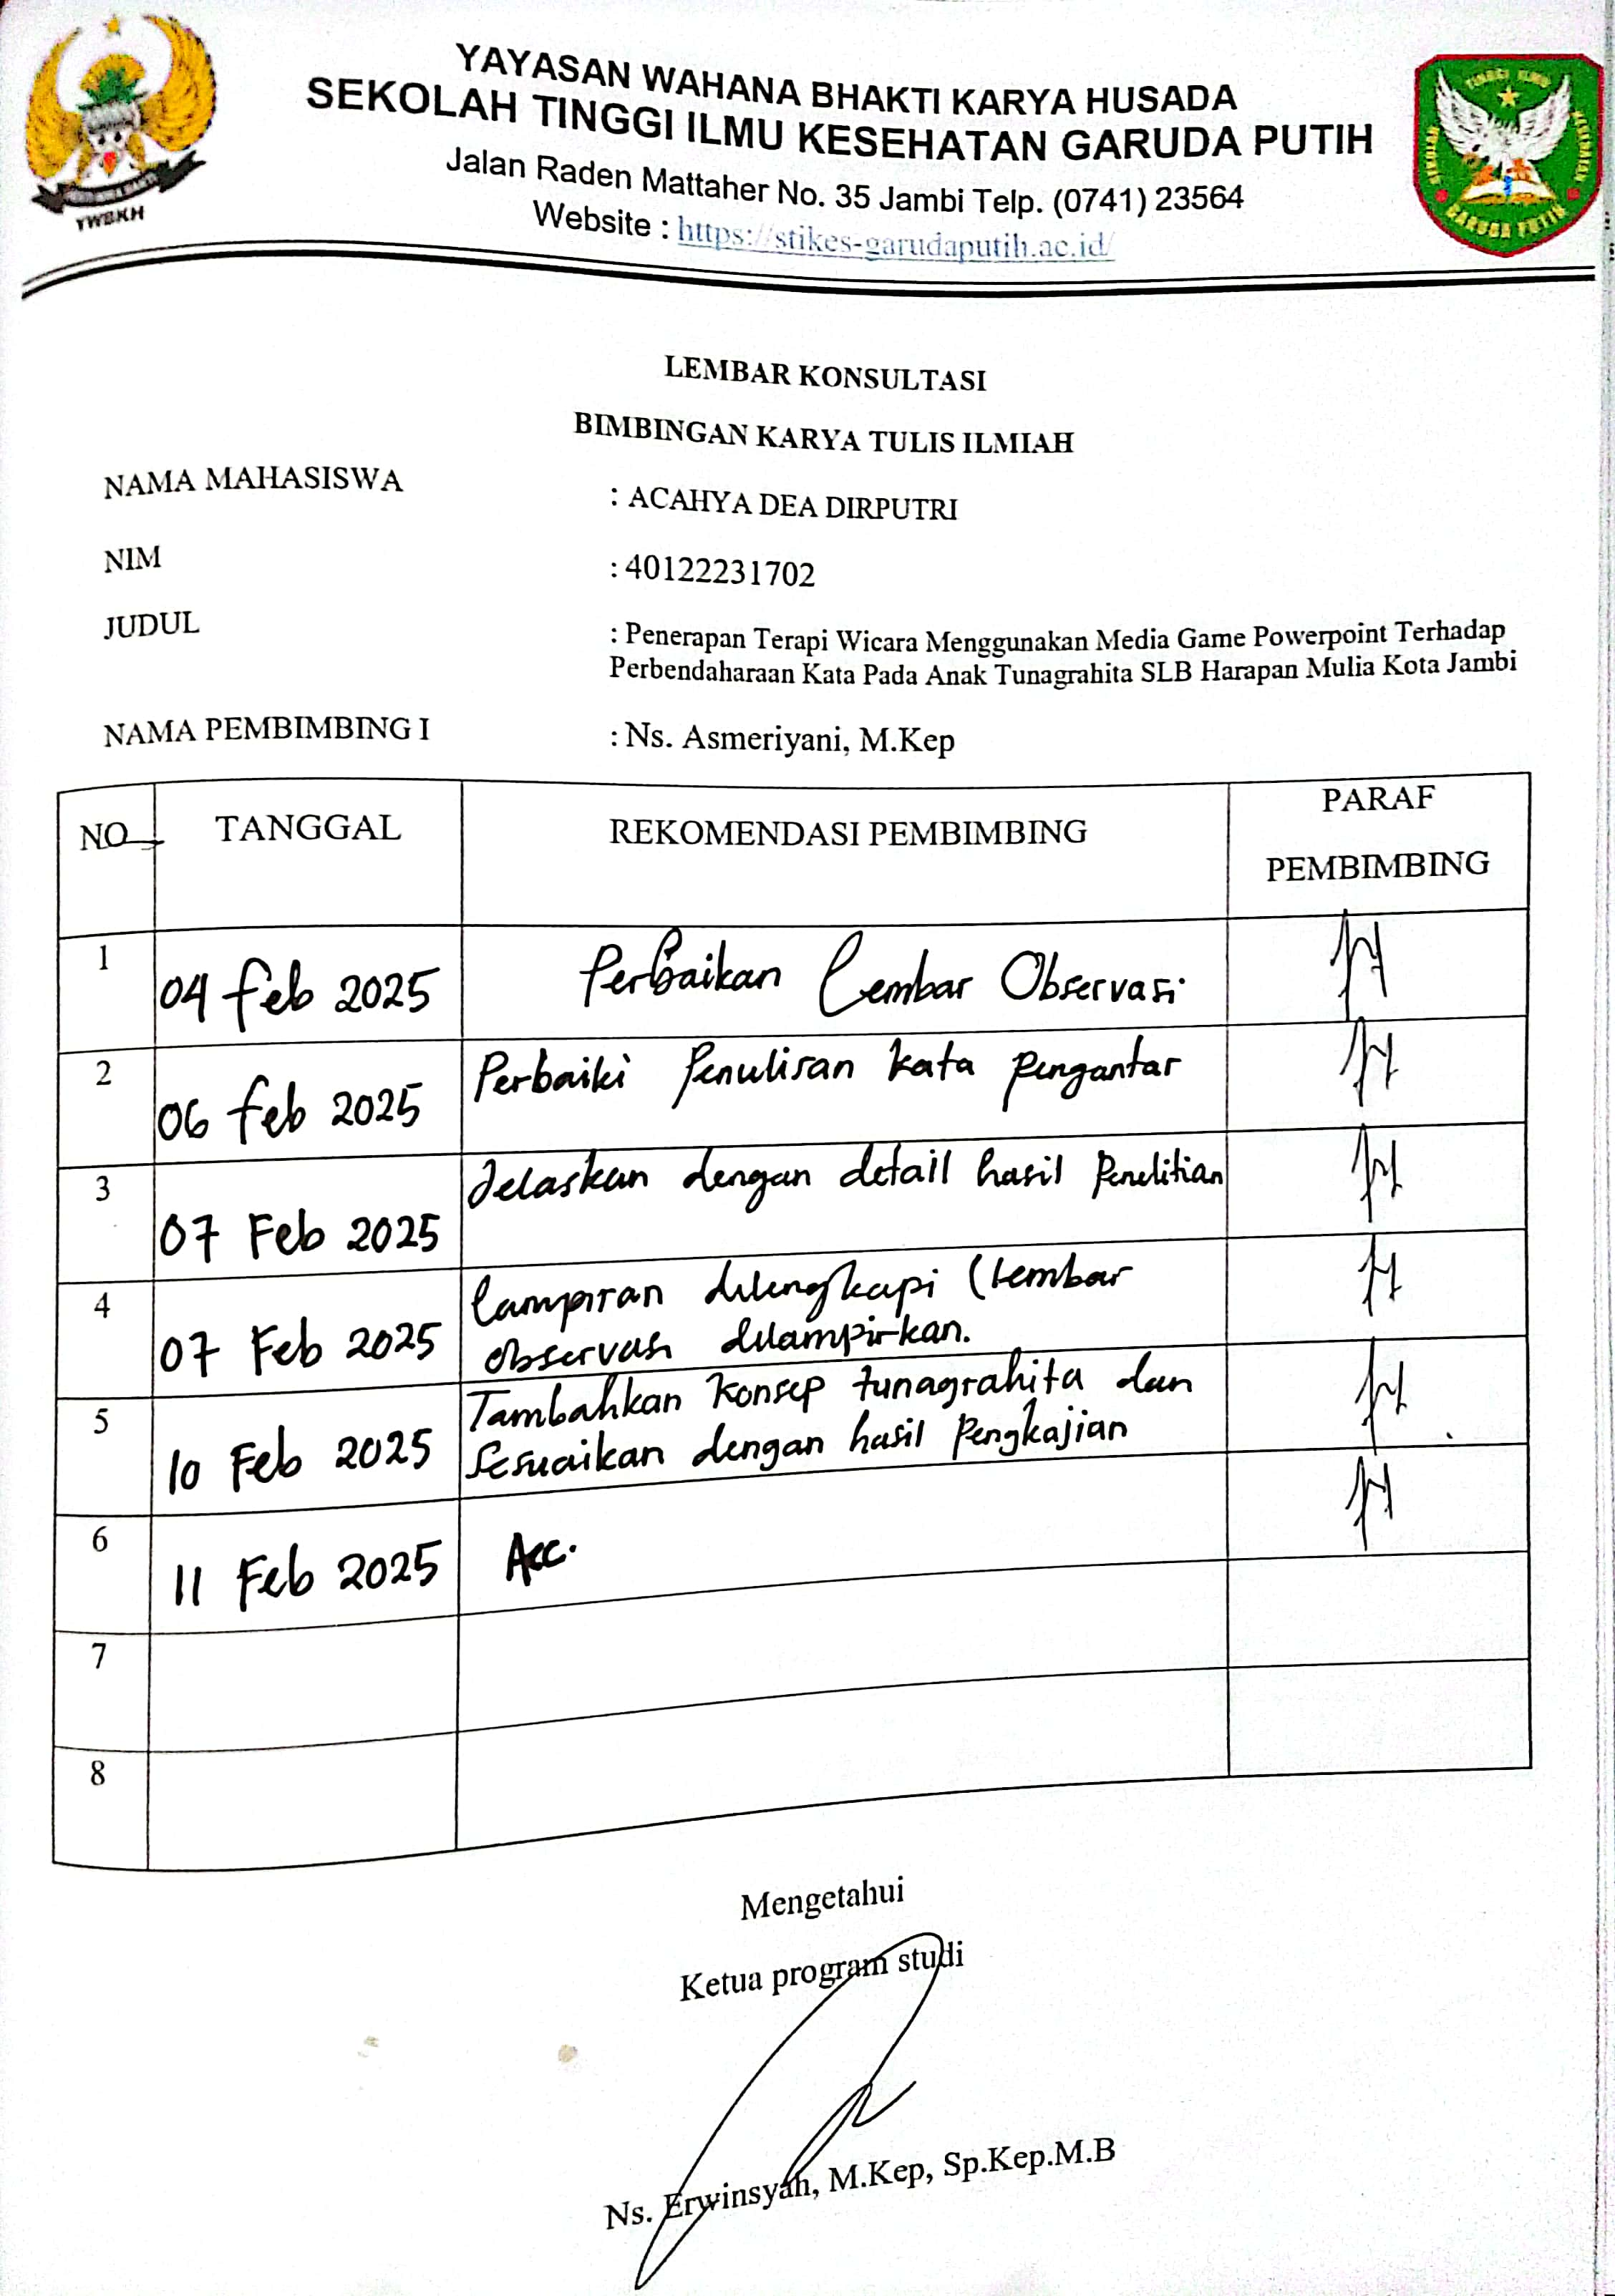 YWBKH
YAYASAN WAHANA BHAKTI KARYA HUSADA
SEKOLAH TINGGI ILMU KESEHATAN GARUDA PUTIH
Jalan Raden Mattaher No. 35 Jambi Telp. (0741) 23564
Website : https://stikes-garudaputih.ac.id/
GARUDA PUTIH
LEMBAR KONSULTASI
BIMBINGAN KARYA TULIS ILMIAH
NAMA MAHASISWA : ACAHYA DEA DIRPUTRI
NIM : 40122231702
JUDUL : Penerapan Terapi Wicara Menggunakan Media Game Powerpoint Terhadap
Perbendaharaan Kata Pada Anak Tunagrahita SLB Harapan Mulia Kota Jambi
NAMA PEMBIMBING I : Ns. Asmeriyani, M.Kep
NO TANGGAL REKOMENDASI PEMBIMBING PARAF
PEMBIMBING
1 04 Feb 2025 Perbaikan Lembar Observasi
2 06 Feb 2025 Perbaiki Penulisan kata pengantar
3 07 Feb 2025 Jelaskan dengan detail hasil Penelitian
4 07 Feb 2025 Lampiran dilengkapi (Lembar
observasi dilampirkan.
5 10 Feb 2025 Tambahkan Konsep tunagrahita dan
Sesuaikan dengan hasil Pengkajian
6 11 Feb 2025 Acc.
7
8
Mengetahui
Ketua program studi
Ns. Erwinsyah, M.Kep, Sp.Kep.M.B